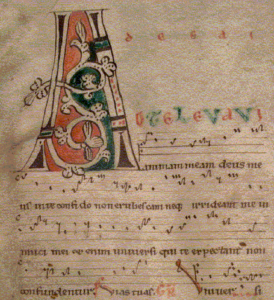 A
D TE LEVAVI
animam meam deus me
us in te confido non erubescam neq irrideant me in
imici mei etenim universi qui te expectant non
confundentur Vias tuas. GR Universi